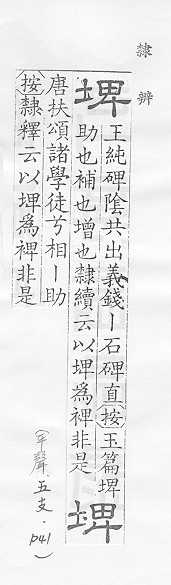 隸辨
埤
王純碑陰共出義錢丨石碑直按玉篇埤
助也補也增也隸續云以埤爲裨非是
埤
唐扶頌諸學徒兮相丨助
按隸釋云以埤爲裨非是
(平聲、五支・P41)